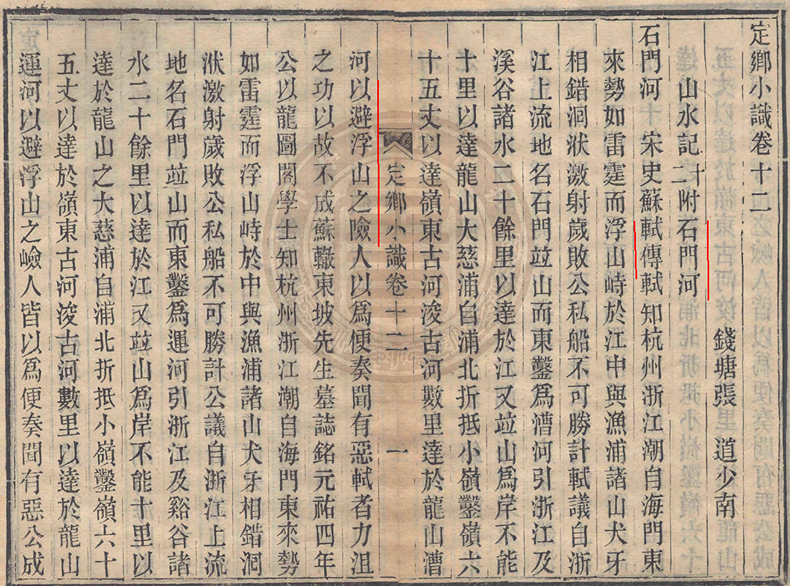 定鄉小識卷十二
山水記十二附石門河
錢塘張 道少南
石門河 宋史蘇軾傳軾知杭州浙江潮自海門東
來勢如雷霆而浮山峙於江中與漁浦諸山犬牙
相錯洄洑激射歲敗公私船不可勝計軾議自浙
江上流地名石門竝山而東鑿爲漕河引浙江及
溪谷諸水二十餘里以達於江又竝山爲岸不能
十里以達龍山大慈浦自浦北折抵小嶺鑿嶺六
十五丈以達嶺東古河浚古河數里達於龍山漕
定鄉小識卷十二 一
河以避浮山之險人以爲便奏聞有惡軾者力沮
之功以故不成蘇轍東坡先生墓誌銘元祐四年
公以龍圖閣學士知杭州浙江潮自海門東來勢
如雷霆而浮山峙於中與漁浦諸山犬牙相錯洄
洑激射歲敗公私船不可勝計公議自浙江上流
地名石門竝山而東鑿爲運河引浙江及谿谷諸
水二十餘里以達於江又竝山爲岸不能十里以
達於龍山之大慈浦自浦北折抵小嶺鑿嶺六十
五丈以達於嶺東古河浚古河數里以達於龍山
運河以避浮山之嶮人皆以爲便奏聞有惡公成